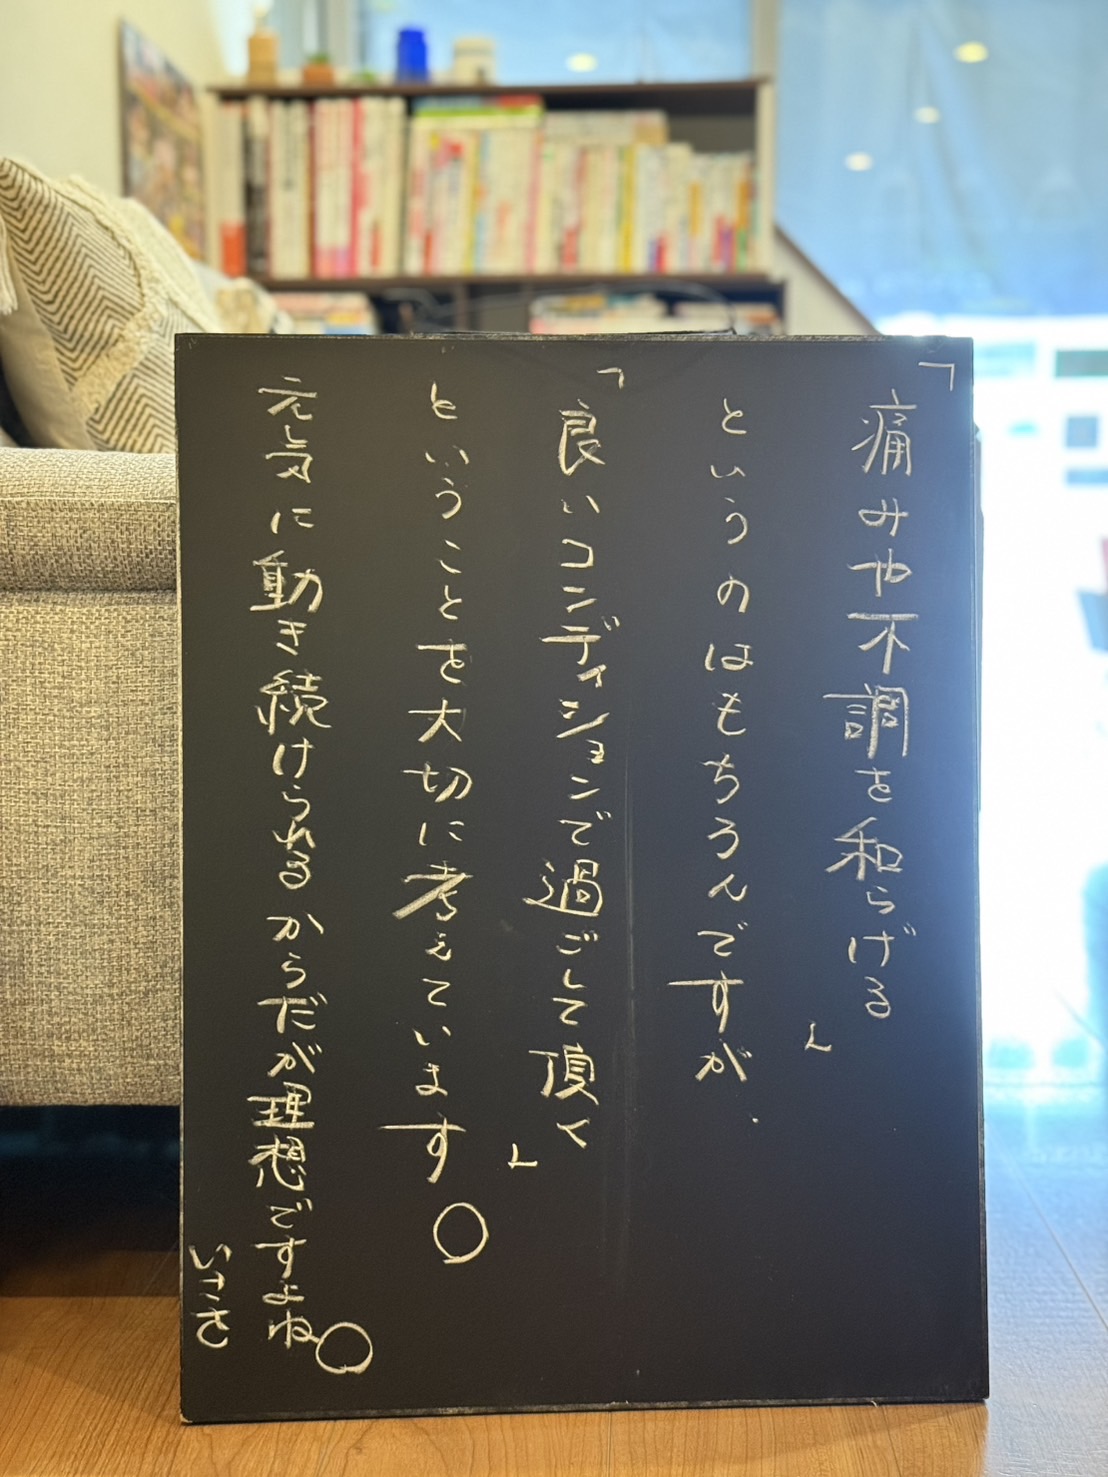 「痛みや不調を和らげる」
というのはもちろんですが、
「良いコンディションで過ごして頂く」
ということを大切に考えています。
元気に動き続けられるからだが理想ですよね。
いさを